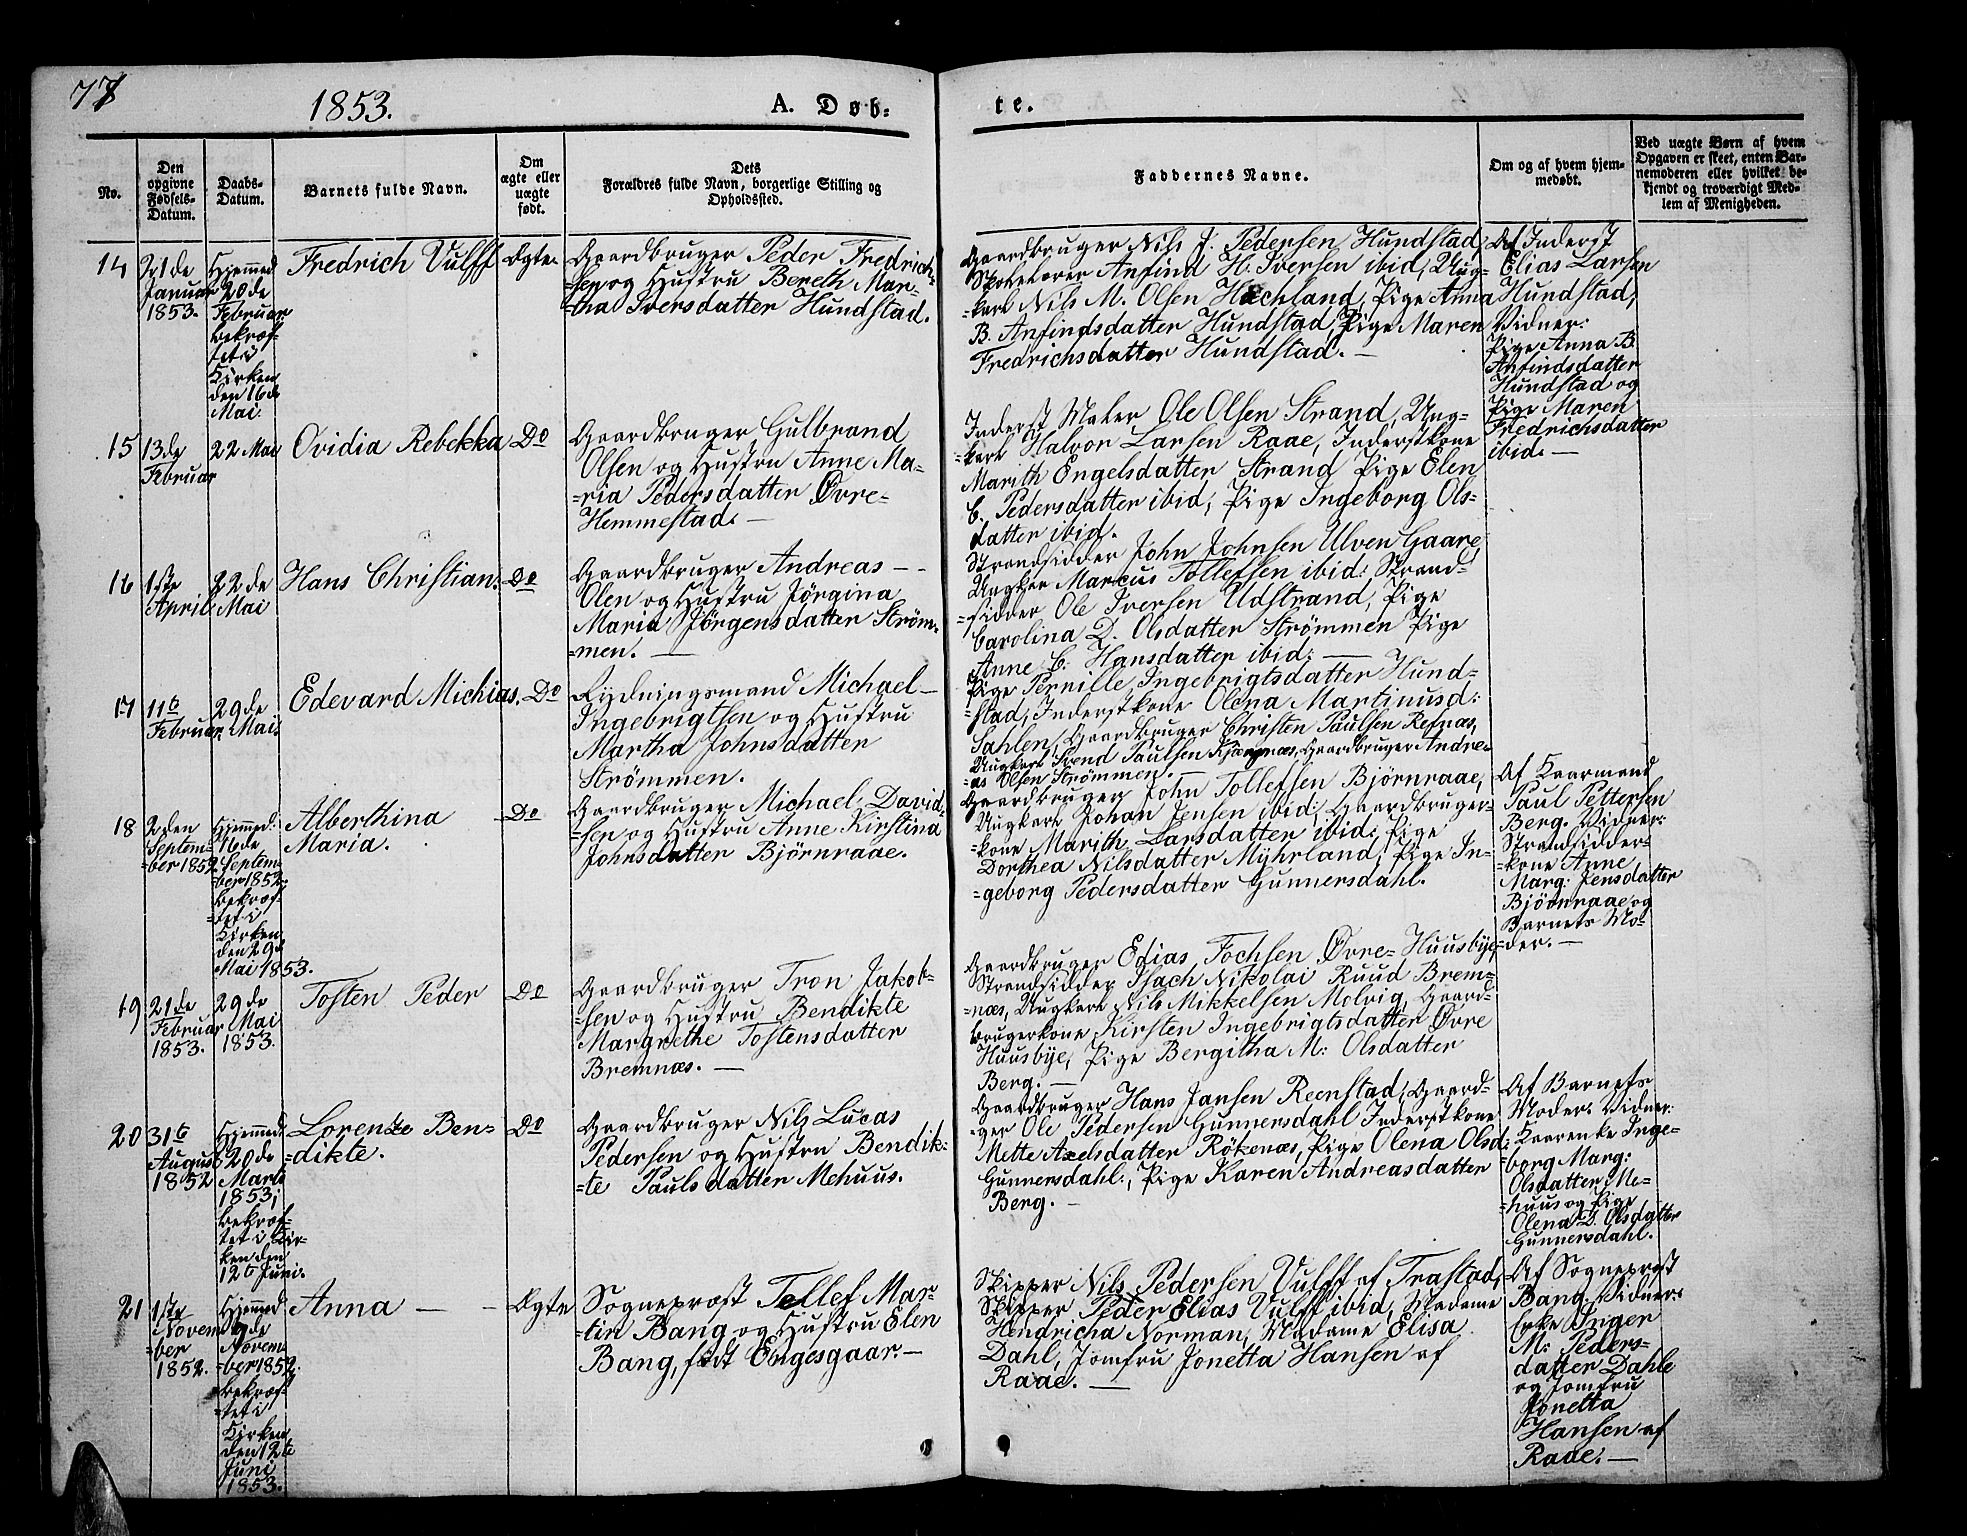 77
1853.
A. Døb-
te.
No.
Den
opgivne
Fødsels-
Datum.
Daabs-
Datum.
Barnets fulde Navn.
Om
ægte eller
uægte
født.
Dets
Forældres fulde Navn, borgerlige Stilling og
Opholdssted.
Faddernes Navne.
Om og af hvem hjem-
medøbt.
Ved uægte Børn af hvem
Opgaven er skeet, enten Bar-
nemoderen eller hvilket be-
kjendt og troværdigt Med-
lem af Menigheden.
14
21de
Januar
1853.
Hjemmed
20de
Februar
bekræf-
tet i
Kirken
den 16de
Mai.
Fredrich Vulff
Ægte
Gaardbruger Peder Fredrich-
=sen og Hustru Bereth Mar-
=tha Iversdatter Hundstad.
Gaardbruger Nils J. Pedersen Hundstad,
Skolelærer Anfind H. Iversen ibid, Ung-
=karl Nils M. Olsen Hachland, Pige Anna
B. Anfindsdatter Hundstad, Pige Maren
Fredrichsdatter Hundstad. —
Af Inderst
Elias Larsen
Hundstad,
Vidner:
Pige Anna B.
Anfindsdatter
Hundstad og
Pige Maren
Fredrichsdatter
ibid. —
15
13de
Februar
22 Mai
Ovidia Rebekka
Do
Gaardbruger Gulbrand
Olsen og Hustru Anne Ma-
=ria Pedersdatter Øvre-
Hemmestad. —
Inderst Maler Ole Olsen Strand, Ung-
=karl Halvor Larsen Raae, Inderstkone
Marith Engelsdatter Strand Pige Elen
C. Pedersdatter ibid, Pige Ingeborg Ols-
datter ibid.
16
1ste
April
22de
Mai
Hans Christian.
Do
Gaardbruger Andreas - -
Olen og Hustru Jörgina
Maria Jörgensdatter Ström-
=men. —
Strandsidder John Johnsen Ulven Gaare,
Ungkar Marcus Tollefsen ibid: Strand-
=sidder Ole Iversen Udstrand, Pige
Carolina D. Olsdatter Strömmen Pige
Anne C. Hansdatter ibid: —
17
11te
Februar.
29de
Mai.
Edevard Michias.
Do
Rydningsmand Michael-
Ingebrigtsen og Hustru
Martha Johnsdatter
Strömmen.
Pige Pernille Ingebrigtsdatter Hund-
=stad, Inderstkone Olena Martinusd:
Sahlen, Gaardbruger Christen Paulsen Refnæs,
Ungkarl Svend Paulsen Kjøngsnæs, Gaardbruger Andre-
=as Olsen Strömmen. —
18
2den
Septem-
=ber 1852.
Hjemmed:
16de
Septem-
=ber 1852.
bekræf-
=tet i
Kirken
den 29de
Mai 1853.
Alberthina
Maria.
Do
Gaardbruger Michael David-
=sen og Hustru Anne Kirstina
Johnsdatter Björnraae.
Gaardbruger John Tollefsen Björnraae,
Ungkarl Johan Jensen ibid; Gaardbruger-
=kone Marith Larsdatter ibid: Pige
Dorthea Nilsdatter Myhrland, Pige In-
=geborg Pedersdatter Gunnersdahl.
Af Kaarmand
Paul Pettersen
Berg. Vidner:
Strandsidder-
=kone Anne
Marg: Jensdatter
Björnraae og
Barnets Mo-
=der. —
19
21de
Februar
1853.
29de
Mai
1853.
Tosten Peder
Do
Gaardbruger Tron Jakob-
=sen og Hustru Bendikte
Margrethe Tostensdatter
Bremnæs. —
Gaardbruger Edias Fochsen Øvre-Huusbye,
Strandsidder Isach Nikolai Ruud Brem-
=næs, Ungkarl Nils Mikkelsen Molvig, Gaard-
brugerkone Kirsten Ingebrigtsdatter Øvre
Huusbye, Pige Bergitha M: Olsdatter
Berg. —
20
31te
August
1852
Hjemmed:
20de
Marts
1853,
bekræf-
tet i Kir-
ken den
12te Juni.
Lorentze Ben-
=dikte.
Do
Gaardbruger Nils Lucas
Pedersen og Hustru Bendik-
=te Paulsdatter Mehuus.
Gaardbruger Hans Jansen Reenstad, Gaardbru-
=ger Ole Pedersen Gunnersdahl Inderstkone
Mette Axelsdatter Rökenæs, Pige Olena Olsd:
Gunnersdahl:, Pige Karen Andreasdatter
Berg. —
Af Barnets
Moder. Vidner:
Kaarenke Inge-
=borg Marg:
Olsdatter Me-
=huus og Pige
Olena D. Olsdatter
Gunnersdahl.
21
1ste
Novem-
=ber
1852.
Hjemmed
9de
Novem-
=ber 1852.
bekræf-
=tet i
Kirken
den 12te
Juni
1853.
Anna — -
Ægte
Sogneprost Tellef Mar-
=tin Bang og Hustru Elen
Bang, født Engesgaar. —
Skipper Nils Pedersen Vulff af Trastad,
Skipper Peder Elias Vulff ibid, Madame
Hendricha Norman, Madame Elisa
Dahl, Jomfru Jonetta Hansen af
Raae. —
Af Sogneprost
Bang. Vidner:
Enke Inger
M: Peders-
datter Dahle
og Jomfru
Jonetta
Hansen af
Raae. —